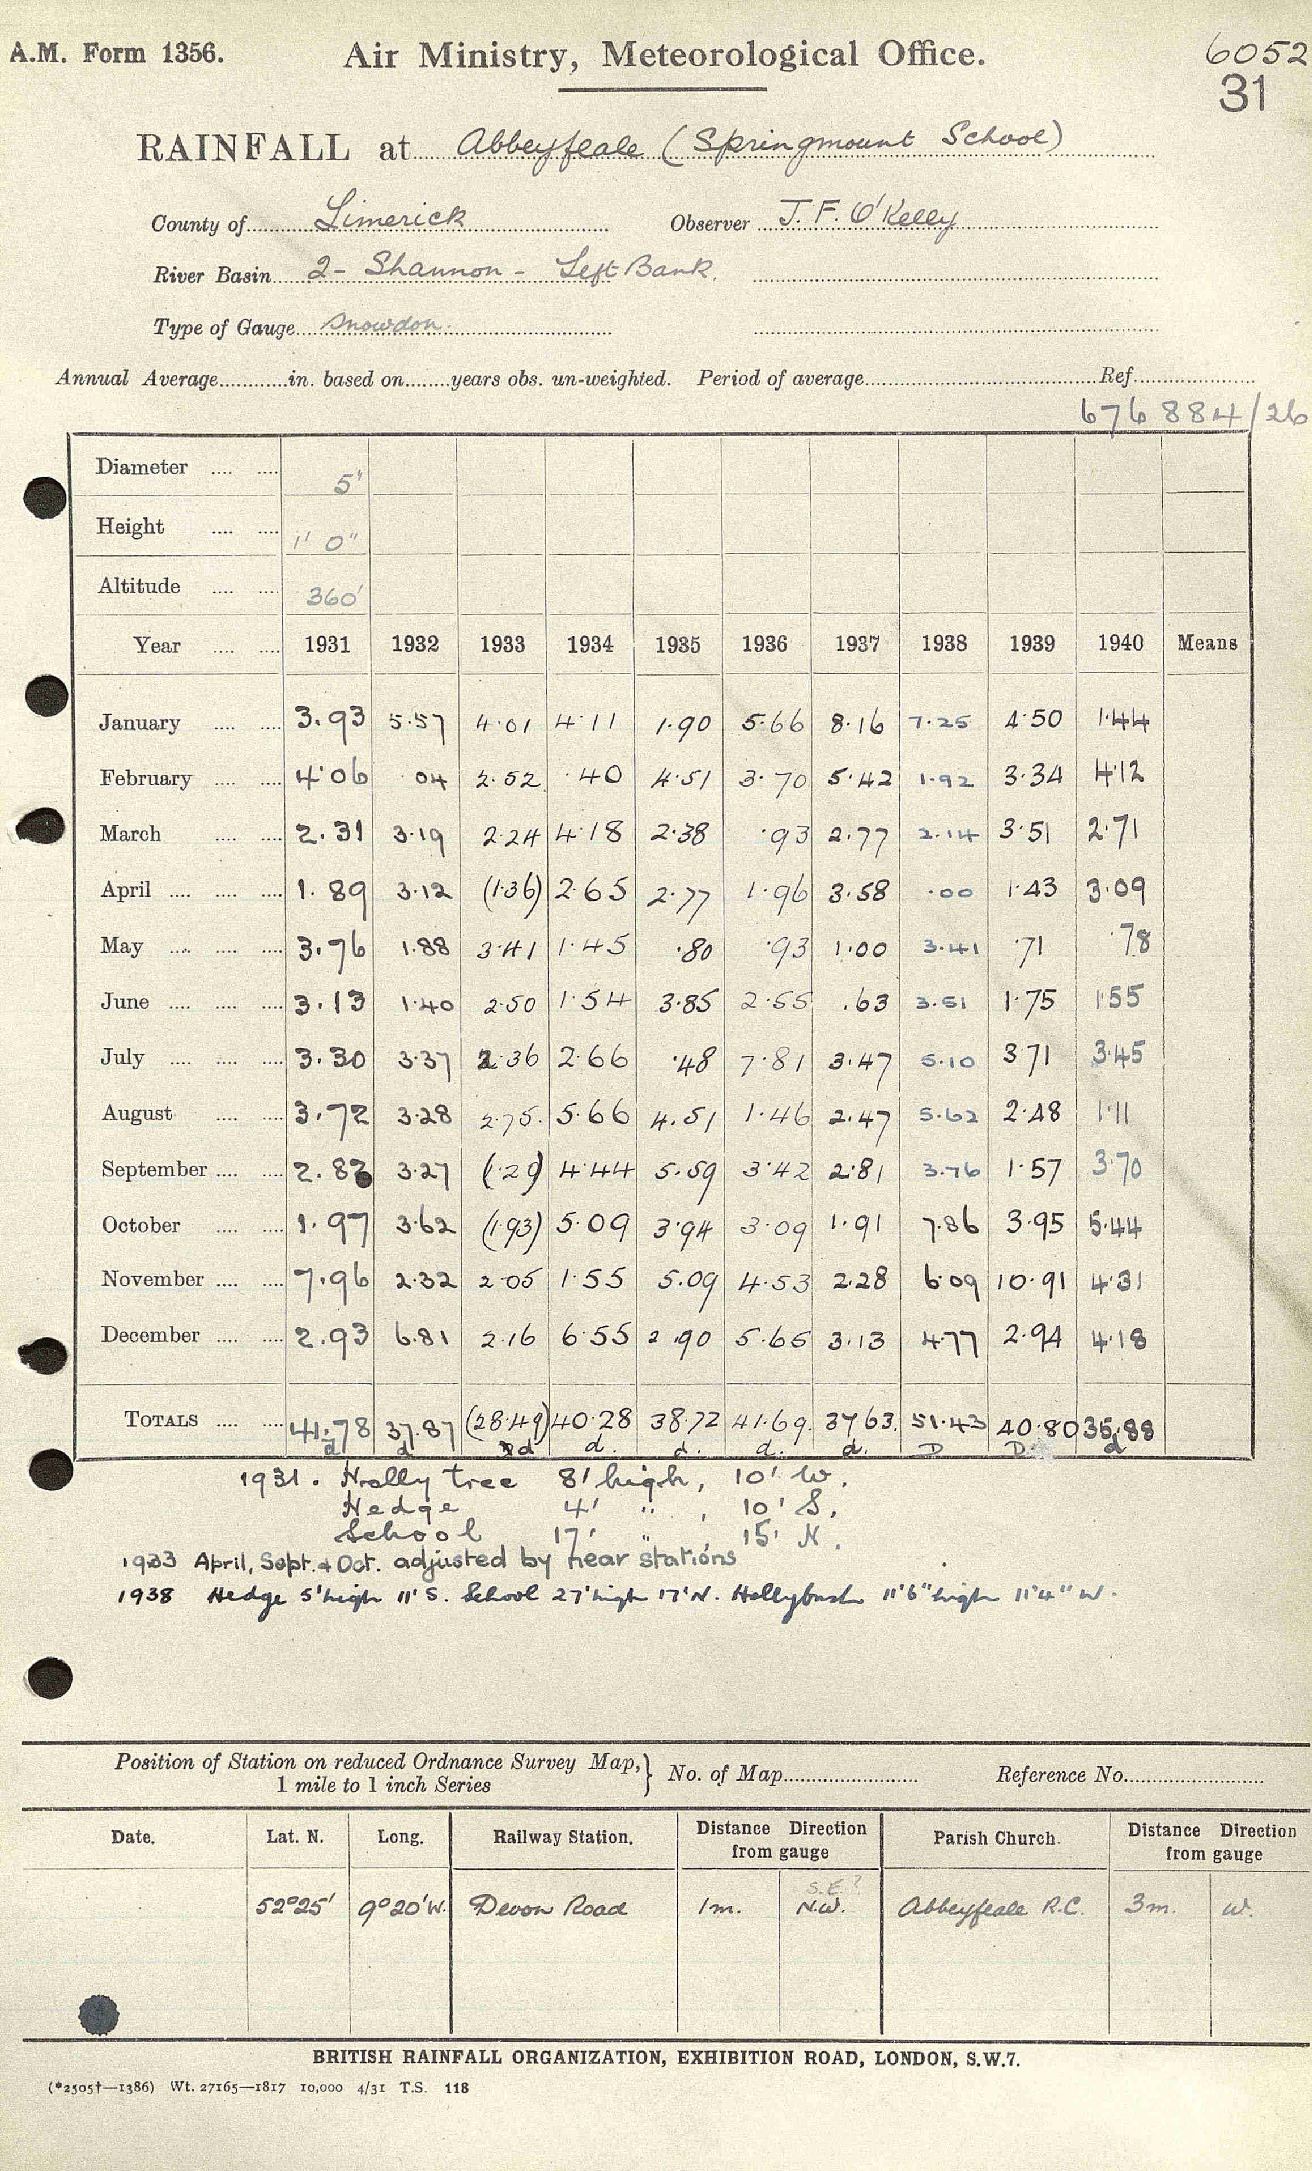 A.M. Form 1356. Air Ministry, Meteorological Office. 6052
31
RAINFALL at Abbeyfeale (Springmount School)
County of Limerick Observer J. F. O'Kelly
River Basin 2 - Shannon - Left Bank.
Type of Gauge Snowdon.
Annual Average............in. based on........years obs. un-weighted. Period of average............Ref............
676 884/26
Diameter .... .... 5"
Height .... .... 1' 0"
Altitude .... .... 360'
Year .... .... 1931 1932 1933 1934 1935 1936 1937 1938 1939 1940 Means
January .... .... 3.93 5.57 4.01 4.11 1.90 5.66 8.16 7.25 4.50 1.44
February .... .... 4.06 .04 2.52 .40 4.51 3.70 5.42 1.92 3.34 4.12
March .... .... 2.31 3.19 2.24 4.18 2.38 .93 2.77 2.14 3.51 2.71
April .... .... .... 1.89 3.12 (1.36) 2.65 2.77 1.96 3.58 .00 1.43 3.09
May .... .... .... 3.76 1.88 3.41 1.45 .80 .93 1.00 3.41 .71 .78
June .... .... .... 3.13 1.40 2.50 1.54 3.85 2.55 .63 3.51 1.75 1.55
July .... .... .... 3.30 3.37 2.36 2.66 .48 7.81 3.47 5.10 3.71 3.45
August .... .... 3.72 3.28 2.75 5.66 4.51 1.46 2.47 5.62 2.48 1.11
September .... .... 2.82 3.27 (1.29) 4.44 5.59 3.42 2.81 3.76 1.57 3.70
October .... .... 1.97 3.62 (1.93) 5.09 3.94 3.09 1.91 7.86 3.95 5.44
November .... .... 7.96 2.32 2.05 1.55 5.09 4.53 2.28 6.09 10.91 4.31
December .... .... 2.93 6.81 2.16 6.55 2.90 5.65 3.13 4.77 2.94 4.18
TOTALS .... .... 41.78 37.87 (28.49) 40.28 38.72 41.69 37.63 51.43 40.80 35.88
d d d d. d. d. d. D D d
1931. Holly tree 8' high, 10' W.
Hedge 4' " , 10' S.
School 17' " , 15' N.
1933 April, Sept. & Oct. adjusted by near stations
1938 Hedge 5' high 11' S. School 27' high 17' N. Hollybush 11'6" high 11'4" W.
Position of Station on reduced Ordnance Survey Map, 1 mile to 1 inch Series } No. of Map............ Reference No............
Date. Lat. N. Long. Railway Station. Distance Direction from gauge Parish Church. Distance Direction from gauge
S.E?
52°25' 9°20'W. Devon Road 1m. N.W. Abbeyfeale R.C. 3m. W.
BRITISH RAINFALL ORGANIZATION, EXHIBITION ROAD, LONDON, S.W.7.
(*2505†—1386) Wt. 27165—1817 10,000 4/31 T.S. 118